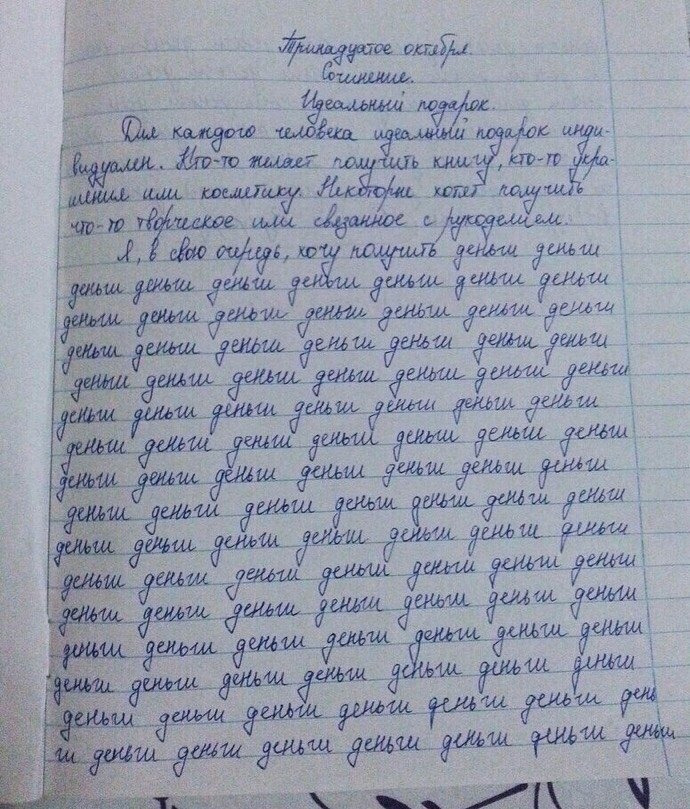 Тринадцатое октября
Сочинение.
Идеальный подарок.
Для каждого человека идеальный подарок инди-
видуален. Кто-то желает получить книгу, кто-то укра-
шения или косметику. Некоторые хотят получить
что-то творческое или связанное с рукоделием.
Я, в свою очередь, хочу получить деньги деньги
деньги деньги деньги деньги деньги деньги деньги
деньги деньги деньги деньги деньги деньги деньги
деньги деньги деньги деньги деньги деньги деньги
деньги деньги деньги деньги деньги деньги деньги
деньги деньги деньги деньги деньги деньги деньги
деньги деньги деньги деньги деньги деньги деньги
деньги деньги деньги деньги деньги деньги деньги
деньги деньги деньги деньги деньги деньги деньги
деньги деньги деньги деньги деньги деньги деньги
деньги деньги деньги деньги деньги деньги деньги
деньги деньги деньги деньги деньги деньги деньги
деньги деньги деньги деньги деньги деньги деньги
деньги деньги деньги деньги деньги деньги деньги
деньги деньги деньги деньги деньги деньги день
ги деньги деньги деньги деньги деньги деньги деньги